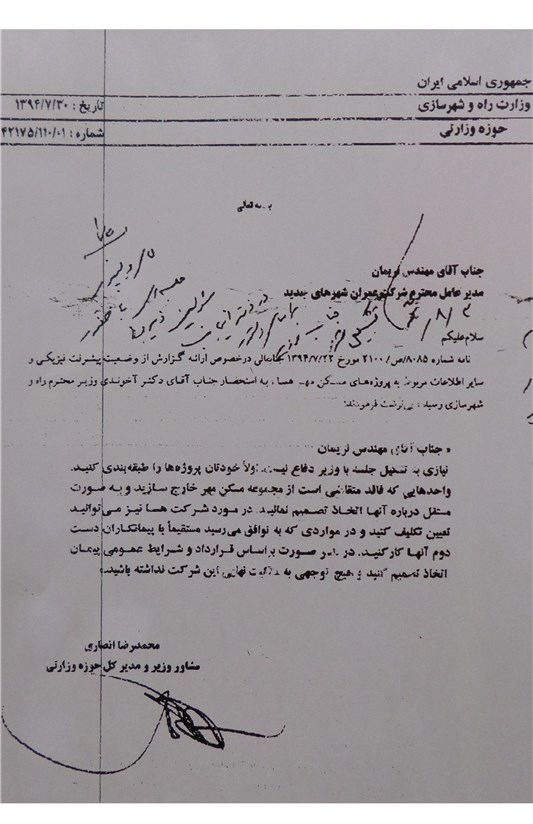 جمهوری اسلامی ایران
وزارت راه و شهرسازی
حوزه وزارتی
تاریخ : ۱۳۹۴/۷/۳۰
شماره : ۴۲۱۷۵/۱۱۰/۰۱
بسمه تعالی
جناب آقای مهندس نریمان
مدیر عامل محترم شرکت عمران شهرهای جدید
سلام علیکم
نامه شماره ۸۰۸۵/ص/۲۱۰۰ مورخ ۱۳۹۴/۷/۲۲ جنابعالی درخصوص ارائه گزارش از وضعیت پیشرفت فیزیکی و
سایر اطلاعات مربوط به پروژه‌های مسکن مهر هسا، به استحضار جناب آقای دکتر آخوندی وزیر محترم راه و
شهرسازی رسید، پی‌نوشت فرمودند:
« جناب آقای مهندس نریمان
نیازی به تشکیل جلسه با وزیر دفاع نیست. اولاً خودتان پروژه‌ها را طبقه‌بندی کنید.
واحدهایی که فاقد متقاضی است از مجموعه مسکن مهر خارج سازید و به صورت
مستقل درباره آنها اتخاذ تصمیم نمائید. در مورد شرکت هسا نیز می‌توانید
تعیین تکلیف کنید و در مواردی که به توافق می‌رسید مستقیماً با پیمانکاران دست
دوم آنها کار کنید. در غیر صورت براساس قرارداد و شرایط عمومی پیمان
اتخاذ تصمیم کنید و هیچ توجهی به مالکیت نهایی این شرکت نداشته باشید.»
محمدرضا انصاری
مشاور وزیر و مدیر کل حوزه وزارتی